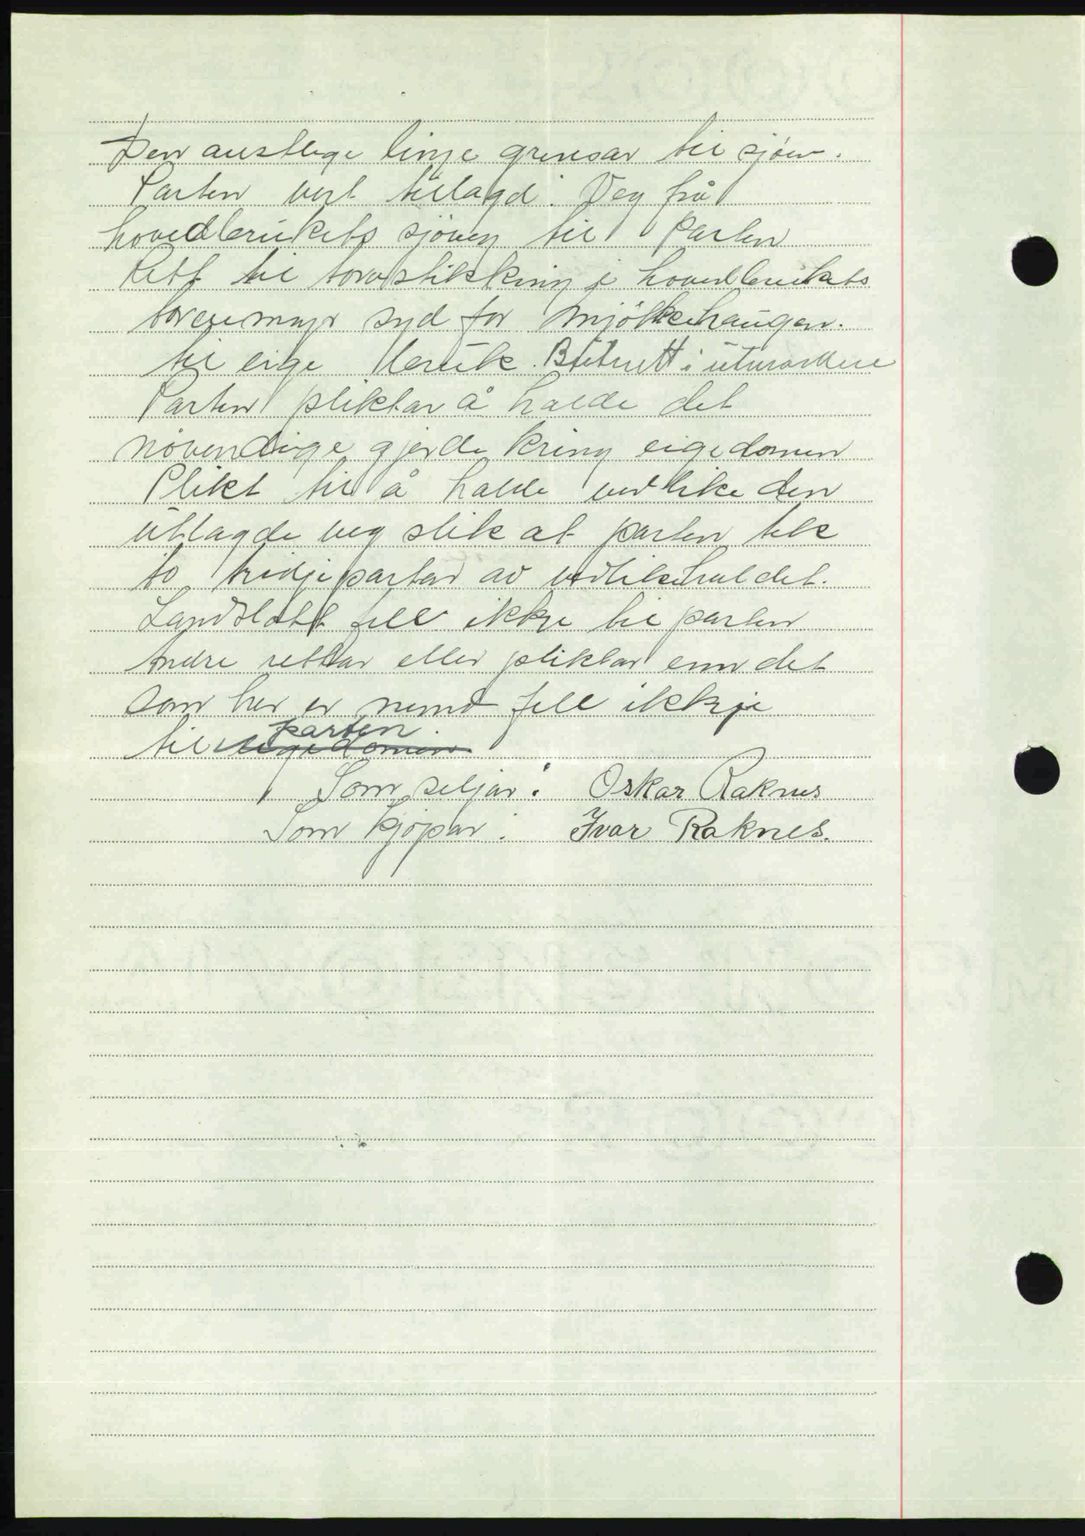 Den austlege linje grensar til sjøen.
Parten vert tillagd: Veg frå
hovedbrukets sjøveg til parten
Rett til torvstikking i hovedbrukets
torvemyr syd for Mjölkehaugen.
til eige bruk. Beiterett i utmarken
Parten pliktar å halde det
növendige gjerde kring eigedomen
Plikt til å halde vedlike den
utlagde veg slik at parten tek
to tridjepartar av vedlikehaldet.
Landslott fell ikkje til parten
Andre rettar eller pliktar enn det
som her er nemnd fell ikkje
til eigedomen parten.
Som seljar: Oskar Raknes
Som kjöpar: Ivar Raknes.